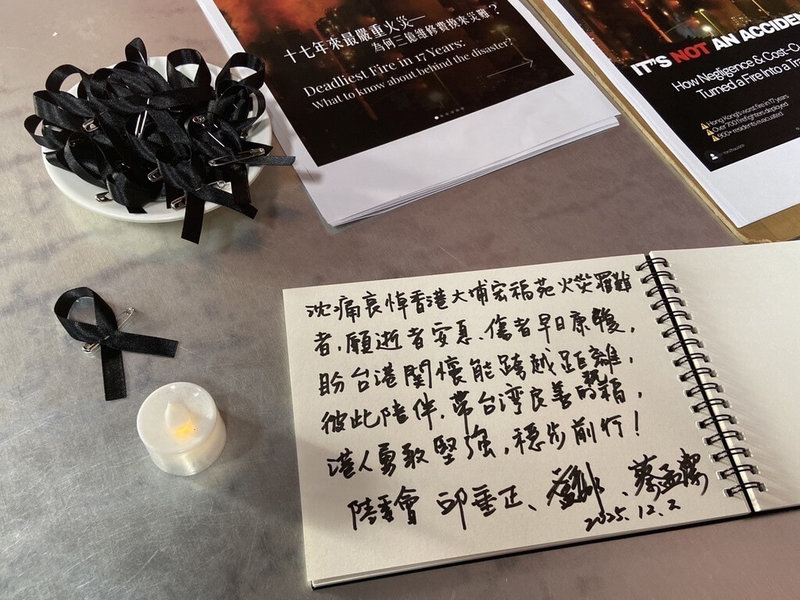 十七年來最嚴重火災—
為何三億維修費換來災難？
Deadliest Fire in 17 Years:
What to know about behind the disaster?
IT'S NOT AN ACCIDEN
How Negligence & Cost-Cu
Turned a Fire into a Tra
Hong Kong's worst fire in 17 years
Over 700 firefighters deployed
900+ residents evacuated
沈痛哀悼香港大埔宏福苑火災罹難
者，願逝者安息、傷者早日康復，
盼台港關懷能跨越距離，
彼此陪伴，帶台湾良善的
港人勇敢堅強，穩步前行！
陸委會 邱垂正、
2025.12.2